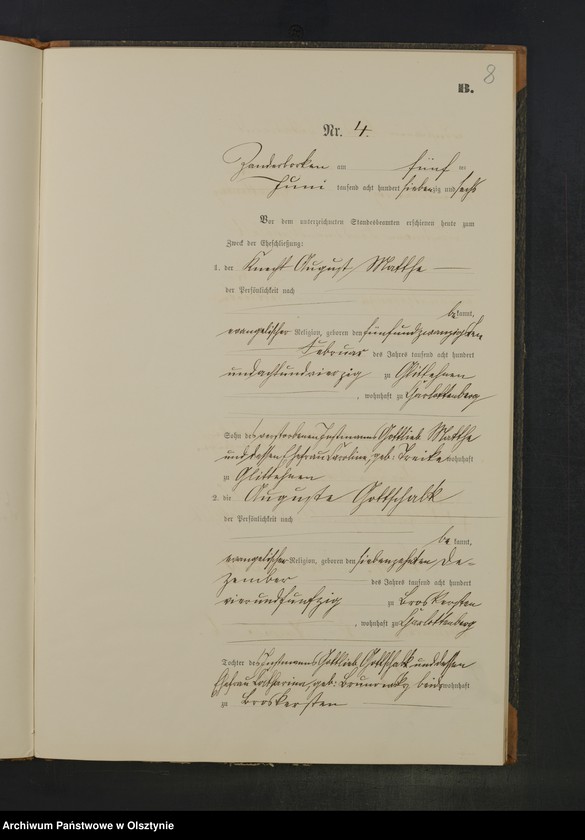 8
B.
Nr. 4.
Zanderborken am fünf ten
Juni tausend acht hundert siebenzig und sechs
Vor dem unterzeichneten Standesbeamten erschienen heute zum
Zweck der Eheschließung:
1. der Knecht August Matthe
der Persönlichkeit nach
bekannt,
evangelischer Religion, geboren den fünfundzwanzigsten
Februar des Jahres tausend acht hundert
undachtundvierzig zu Glittehnen
, wohnhaft zu Charlottenberg
Sohn des verstorbenen Instmanns Gottlieb Matthe
und dessen Ehefrau Caroline, geb: wohnhaft
zu Glittehnen
2. die Auguste Gottschalk
der Persönlichkeit nach
bekannt,
evangelischer Religion, geboren den siebenzehnten De-
zember des Jahres tausend acht hundert
vierundfünfzig zu Broskersten
, wohnhaft zu Charlottenberg
Tochter des Instmanns Gottlieb Gottschalk und dessen
Ehefrau geb: beide wohnhaft
zu Broskersten
Archiwum Państwowe w Olsztynie